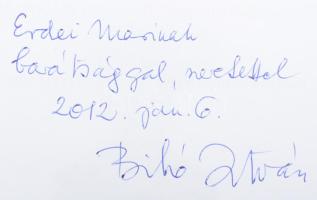 Erdei Marinak
barátsággal, szeretettel
2012. jan. 6.
Bihó István